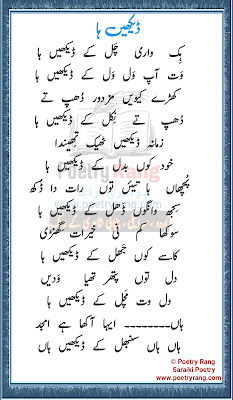 ڈیکھیں ہا
ہِک واری چَل کے ڈیکھیں ہا
وَت آپ وَل وَل کے ڈیکھیں ہا
کھڑے کیویں مزدور دُھپ تے
دُھپ تے نِکل کے ڈیکھیں ہا
زمانہ ڈیکھیں ٹھیک تھیندا
خود کوں بدل کے ڈیکھیں ہا
پُچھاں ہا تیں توں رات دا دُکھ
سجھ وانگوں ڈھل کے ڈیکھیں ہا
سوکھا نئی خیرات کھنڑی
کاسے کوں جَھل کے ڈیکھیں ہا
دل توں پتھر تھیا وَدیں
دل وت مچل کے ڈیکھیں ہا
ہاں-------- ایہا آکھا ہے امجد
ہاں ہاں سنبھل کے ڈیکھیں ہا
Poetry Rang
www.poetryrang.com
© Poetry Rang
Saraiki Poetry
www.poetryrang.com